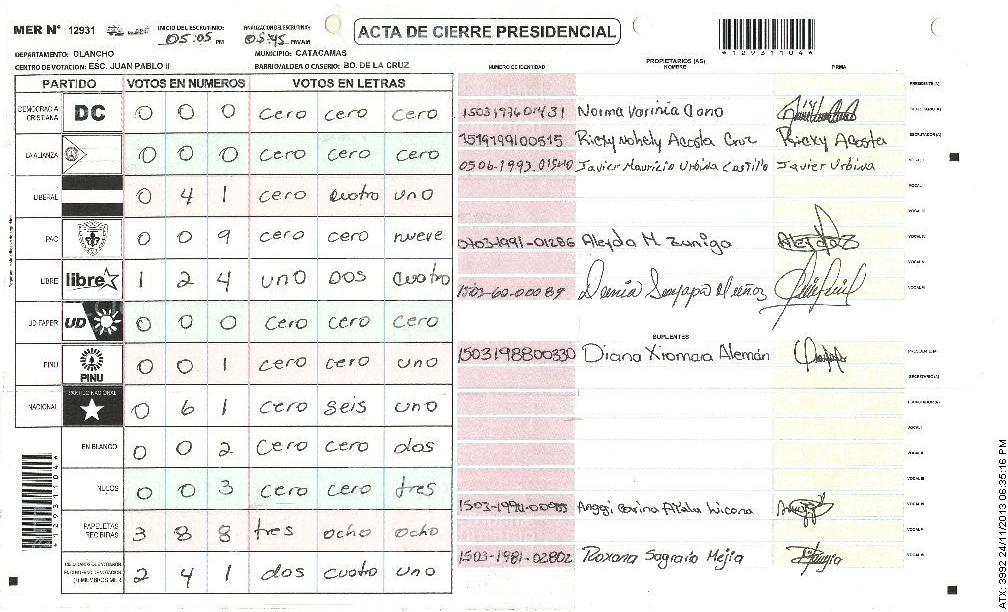 MER Nº 12931 INICIO DEL ESCRUTINIO: 05:05 PM FINALIZACION DEL ESCRUTINIO: 05:45 PM/AM ACTA DE CIERRE PRESIDENCIAL
*12931104*
DEPARTAMENTO: OLANCHO MUNICIPIO: CATACAMAS
CENTRO DE VOTACION: ESC. JUAN PABLO II BARRIO/ALDEA O CASERIO: BO. DE LA CRUZ
PARTIDO VOTOS EN NUMEROS VOTOS EN LETRAS
DEMOCRACIA CRISTIANA DC 0 0 0 cero cero cero
LA ALIANZA 0 0 0 cero cero cero
LIBERAL 0 4 1 cero cuatro uno
PAC 0 0 9 cero cero nueve
LIBRE libre 1 2 4 uno Dos cuatro
UD-FAPER UD 0 0 0 cero cero cero
PINU PINU 0 0 1 cero cero uno
NACIONAL PARTIDO NACIONAL 0 6 1 cero seis uno
EN BLANCO 0 0 2 cero cero dos
NULOS 0 0 3 cero cero tres
PAPELETAS RECIBIDAS 3 8 8 tres ocho ocho
2 4 1 dos cuatro uno
*12931104*
PROPIETARIOS (AS)
NUMERO DE IDENTIDAD NOMBRE FIRMA
PRESIDENTE(A)
Norma Varinia Cano SECRETARIO(A)
1519199100515 Ricxy Nohely Acosta Cruz Ricxy Acosta ESCRUTADOR(A)
Javier Mauricio Urbina Castillo Javier Urbina VOCAL I
VOCAL II
VOCAL III
0703-1991-01286 Aleyda M. Zuniga VOCAL IV
VOCAL V
1503-60-00089 VOCAL VI
SUPLENTES
1503198800330 Diana Xiomara Alemán PRESIDENTE(A)
SECRETARIO(A)
ESCRUTADOR(A)
VOCAL I
VOCAL II
VOCAL III
VOCAL IV
VOCAL V
1503-1981-02802 Roxana Sagrario Mejia VOCAL VI
ATX: 3992 24/11/2013 06:35:16 PM